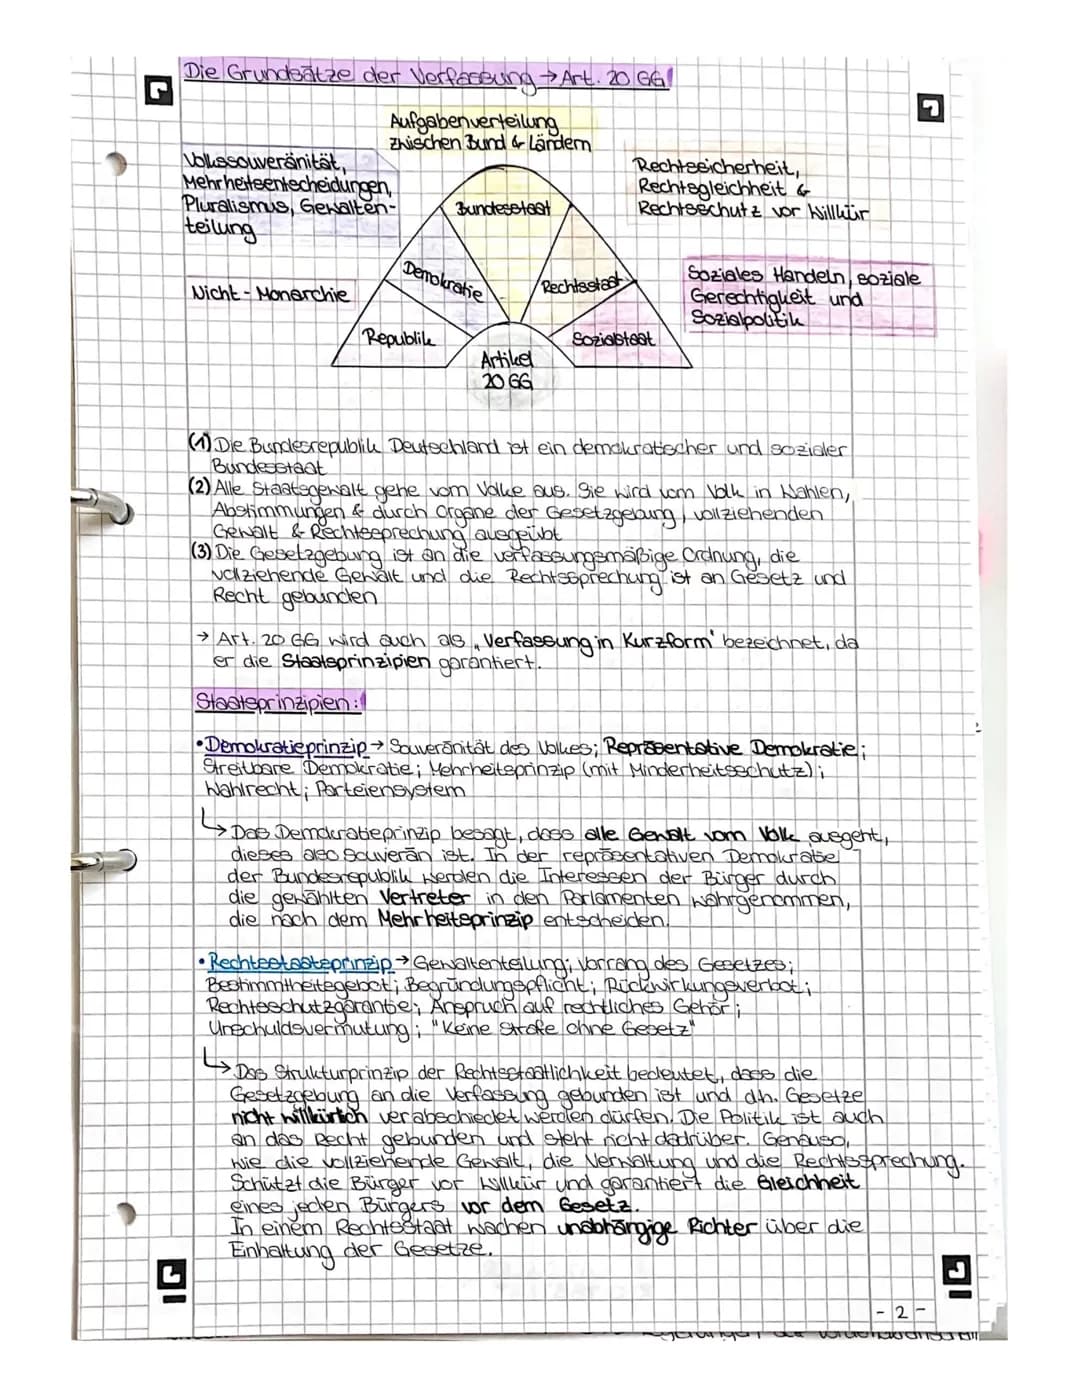 Die Grundsätze der Verfassung → Art. 20 GG
Aufgabenverteilung
zwischen Bund & Ländern
Volkssouveränität,
Mehrheitsentscheidungen,
Pluralismus, Gewalten-
teilung
Rechtssicherheit,
Rechtsgleichheit &
Rechtsschutz vor Willkür
Bundesstaat
Demokratie
Rechtsstaat
Soziales Handeln, soziale
Gerechtigkeit und
Sozialpolitik
Nicht-Monarchie
Republik
Sozialstaat
Artikel
20 GG
(1) Die Bundesrepublik Deutschland ist ein demokratischer und sozialer
Bundesstaat
(2) Alle Staatsgewalt gehe vom Volke aus. Sie wird vom Volk in Wahlen,
Abstimmungen & durch Organe der Gesetzgebung, vollziehenden
Gewalt & Rechtssprechung ausgeübt
(3) Die Gesetzgebung ist an die verfassungsmäßige Ordnung, die
vollziehende Gewalt und die Rechtssprechung ist an Gesetz und
Recht gebunden
→ Art. 20 GG wird auch als „Verfassung in Kurzform' bezeichnet, da
er die Staatsprinzipien garantiert.
Staatsprinzipien:
• Demokratieprinzip → Souveränität des Volkes; Repräsentative Demokratie;
Streitbare Demokratie; Mehrheitsprinzip (mit Minderheitsschutz);
Wahlrecht; Parteiensystem
↳ Das Demokratieprinzip besagt, dass alle Gewalt vom Volk ausgeht,
dieses also Souverän ist. In der repräsentativen Demokratie
der Bundesrepublik werden die Interessen der Bürger durch
die gewählten Vertreter in den Parlamenten wahrgenommen,
die nach dem Mehrheitsprinzip entscheiden.
• Rechtsstaatsprinzip → Gewaltenteilung; Vorrang des Gesetzes;
Bestimmtheitsgebot; Begründungspflicht; Rückwirkungsverbot;
Rechtsschutzgarantie; Anspruch auf rechtliches Gehör;
Unschuldsvermutung; "Keine Strafe ohne Gesetz"
↳ Das Strukturprinzip der Rechtsstaatlichkeit bedeutet, dass die
Gesetzgebung an die Verfassung gebunden ist und dh. Gesetze
nicht willkürlich verabschiedet werden dürfen. Die Politik ist auch
an das Recht gebunden und steht nicht dadrüber. Genauso,
wie die vollziehende Gewalt, die Verwaltung und die Rechtssprechung.
Schützt die Bürger vor Willkür und garantiert die Gleichheit
eines jeden Bürgers vor dem Gesetz.
In einem Rechtsstaat wachen unabhängige Richter über die
Einhaltung der Gesetze.
- 2 -